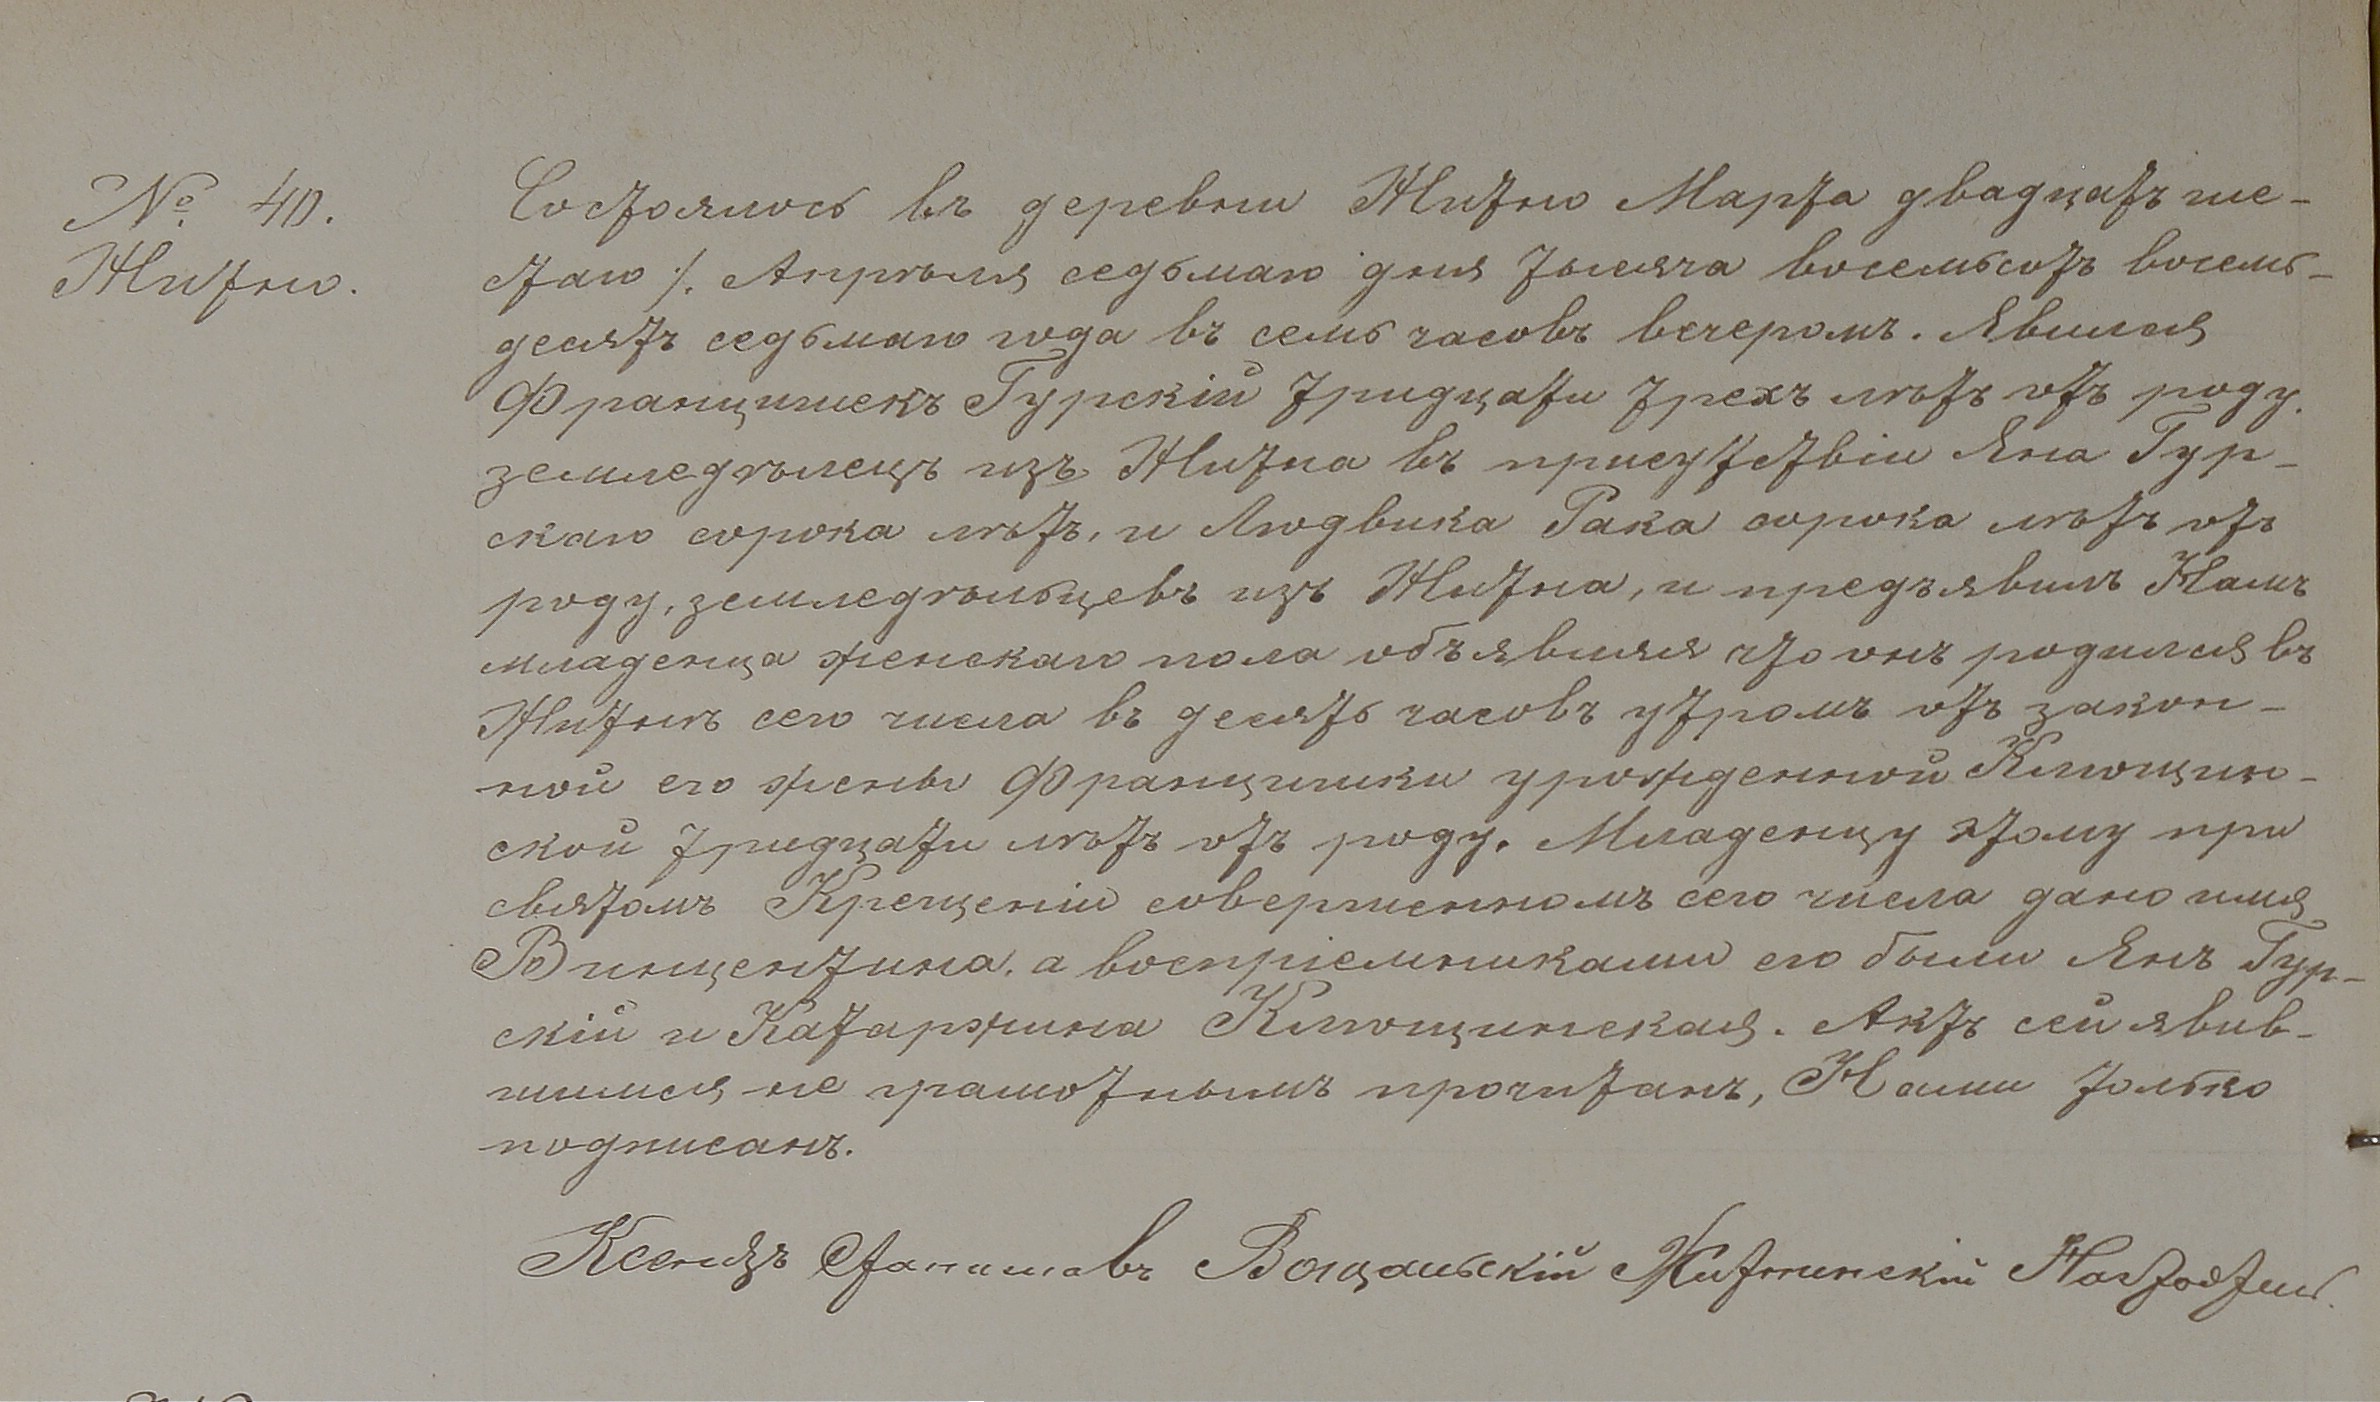 № 40.
Житно.
Состоялось въ деревни Житно Марта двадцатъ ше-
стаго /. Апрѣля седьмаго дня тысяча восемьсотъ восемь-
десятъ седьмаго года въ семь часовъ вечеромъ. Явился
Францишекъ Гурскій тридцати трехъ лѣтъ отъ роду,
земледѣлецъ изъ Житна въ присутствіи Яна Гур-
скаго сорока лѣтъ, и Людвика Рака сорока лѣтъ отъ
роду, земледѣльцевъ изъ Житна, и предъявилъ Намъ
младенца женскаго пола объявляя что онъ родился въ
Житнѣ сего числа въ десять часовъ утромъ отъ закон-
ной его жены Францишки урожденной Клющин-
ской тридцати лѣтъ отъ роду. Младенцу этому при
святомъ Крещеніи совершенномъ сего числа дано имя
Винцентина, а воспріемниками его были Янъ Гур-
скій и Катаржина Клющинская. Актъ сей явив-
шимся не грамотнымъ прочитанъ, Нами только
подписанъ.
Ксендзъ Станиславъ Житнинскій Настоятель.